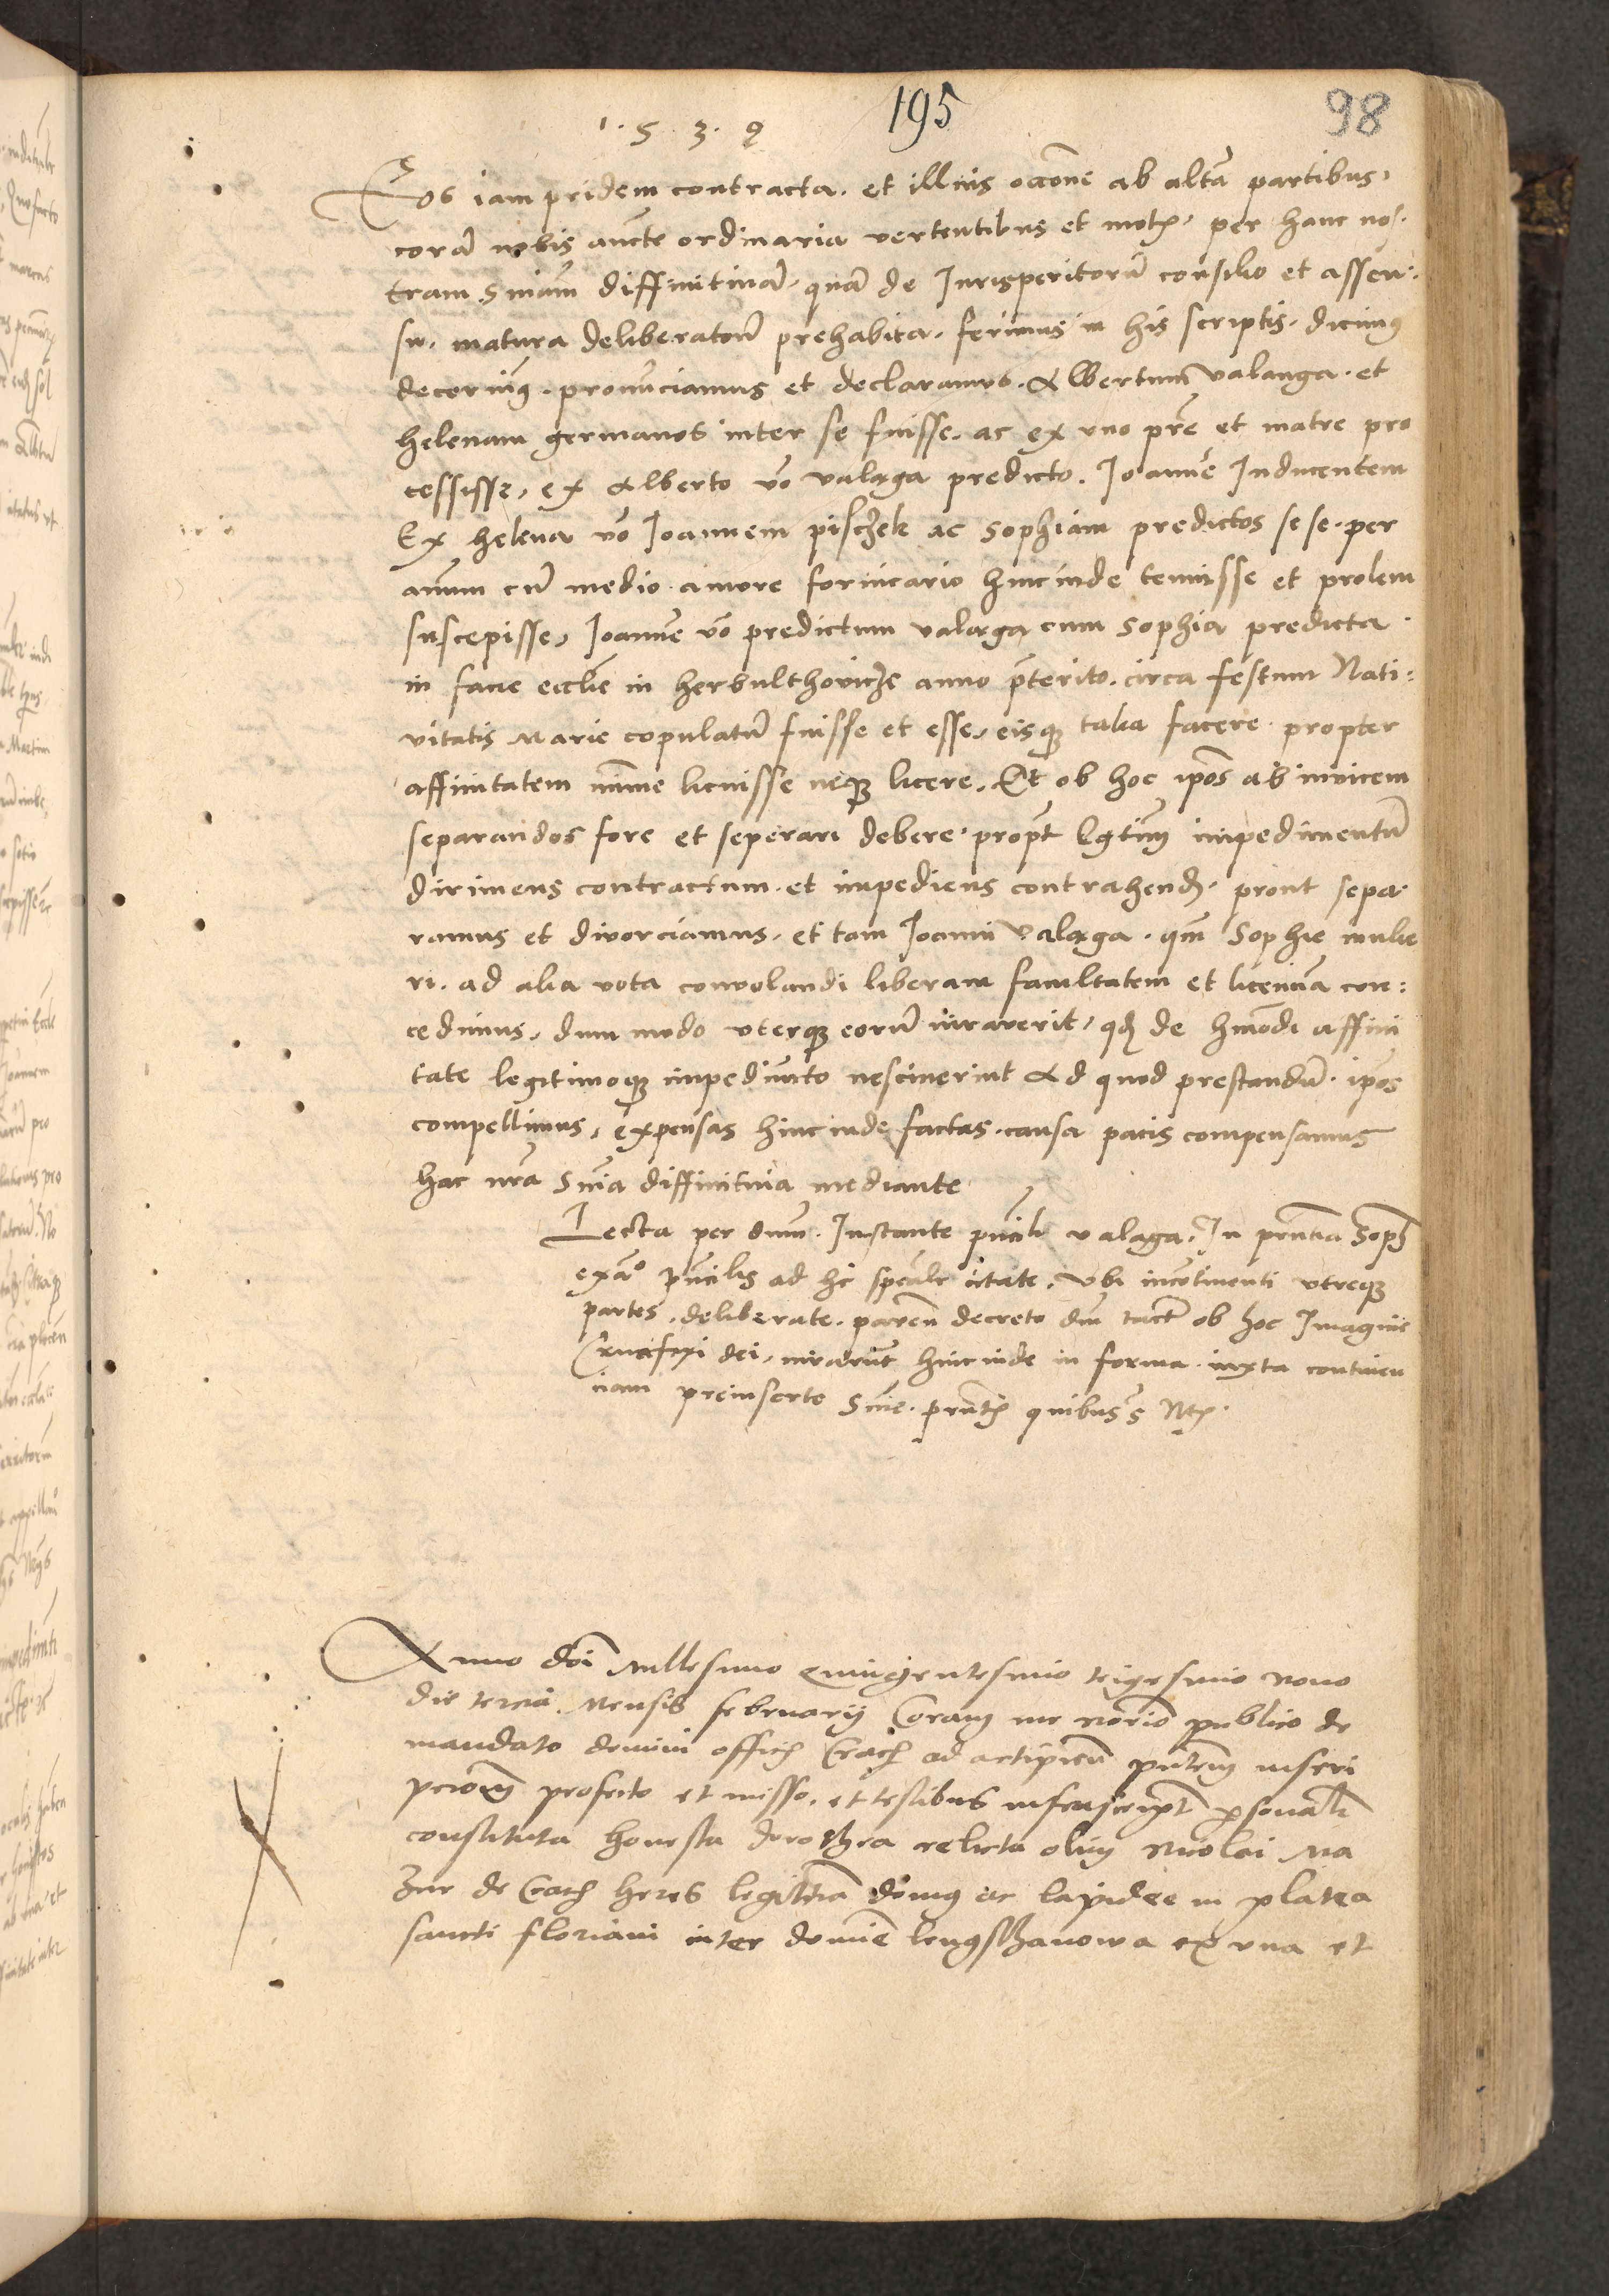 195
98
1.5.3.9
Eos iam pridem contracta. et illius occōne ab altā partibus,
corā nobis aucte ordinaria vertentibus et motis, per hanc nos-
tram Sniam diffinitivā, quā de Jurisperitorū consilio et assen-
su. matura deliberatoē prehabita. ferimus in his scriptis. dicimus
decernimus. pronūciamus et declaramus. Albertum valanga. et
helenam germanos inter se fuisse. ac ex uno prē et matre pro
cessisse, ex Alberto vō valąga predicto. Joannē Inducentem
Ex helena vō Joannem pisczek ac Sophiam predictos sese. per
annum cū medio. amore fornicario hincinde tenuisse et prolem
suscepisse, Joannē vō predictum valąga cum Sophia predicta.
in facie ecclīe in herbulthovicze anno p̄terito. circa festum Nati:
vitatis Marie copulatū fuisse et esse, eisque talia facere propter
affinitatem minime licuisse neque licere. Et ob hoc ipōs ab invicem
separandos fore et seperari debere, propt lgtimū impedimentū
dirimens contractum. et impediens contrahend. prout sepa-
ramus et divorciamus. et tam Joanni valąga. qm̄ Sophie mulie
ri. ad alia vota convolandi liberam facultatem et licenciā con:
cedimus, dum modo uterque eorū iuraverit, qd de hmodi affini
tate legitimoque impedimto nesciverint Ad quod prestandū. ipōs
compellimus, expensas hincinde factas. causa pacis compensamus
hac nrā Snīa diffinitiva mediante
Lecta per dnum. Instante pncili valąga. In prntia Soph
exaº pncilis ad hc spealr citate. Ubi incotinenti utreque
partes. deliberate. paren decreto dni tact ob hoc Imagine
Crucifixi dei, iurarūt hincinde in forma. iuxta continen
ciam preinserte Snīe. prntibus quibus s Ntis.
Anno dōi Millesimo Quingentesimo trigesimo nono
die tercia Mensis februarii Coram me Notrio publico de
mandato domini offich Crach ad actūpicen pntem inscri
pcioem profecto et misso. et testibus infrascript psonali
constituta honesta dorothea relicta olim Nicolai Ma
zur de Crach heres legittia domus ac lapidee in platea
sancti floriani inter domūe lengsthanowa ex una et